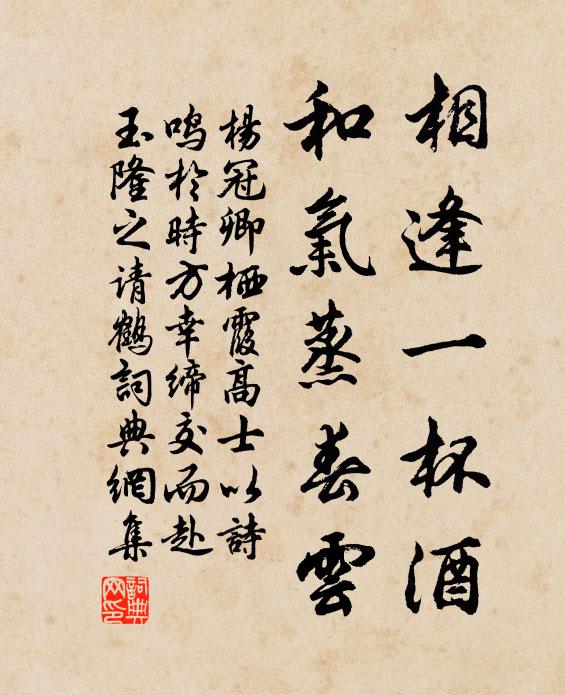 相逢一杯酒
和氣蒸春雲
楊冠卿栖霞高士以詩
鳴於時方幸締交而赴
玉隆之请鶴詞典網集
詞典网印